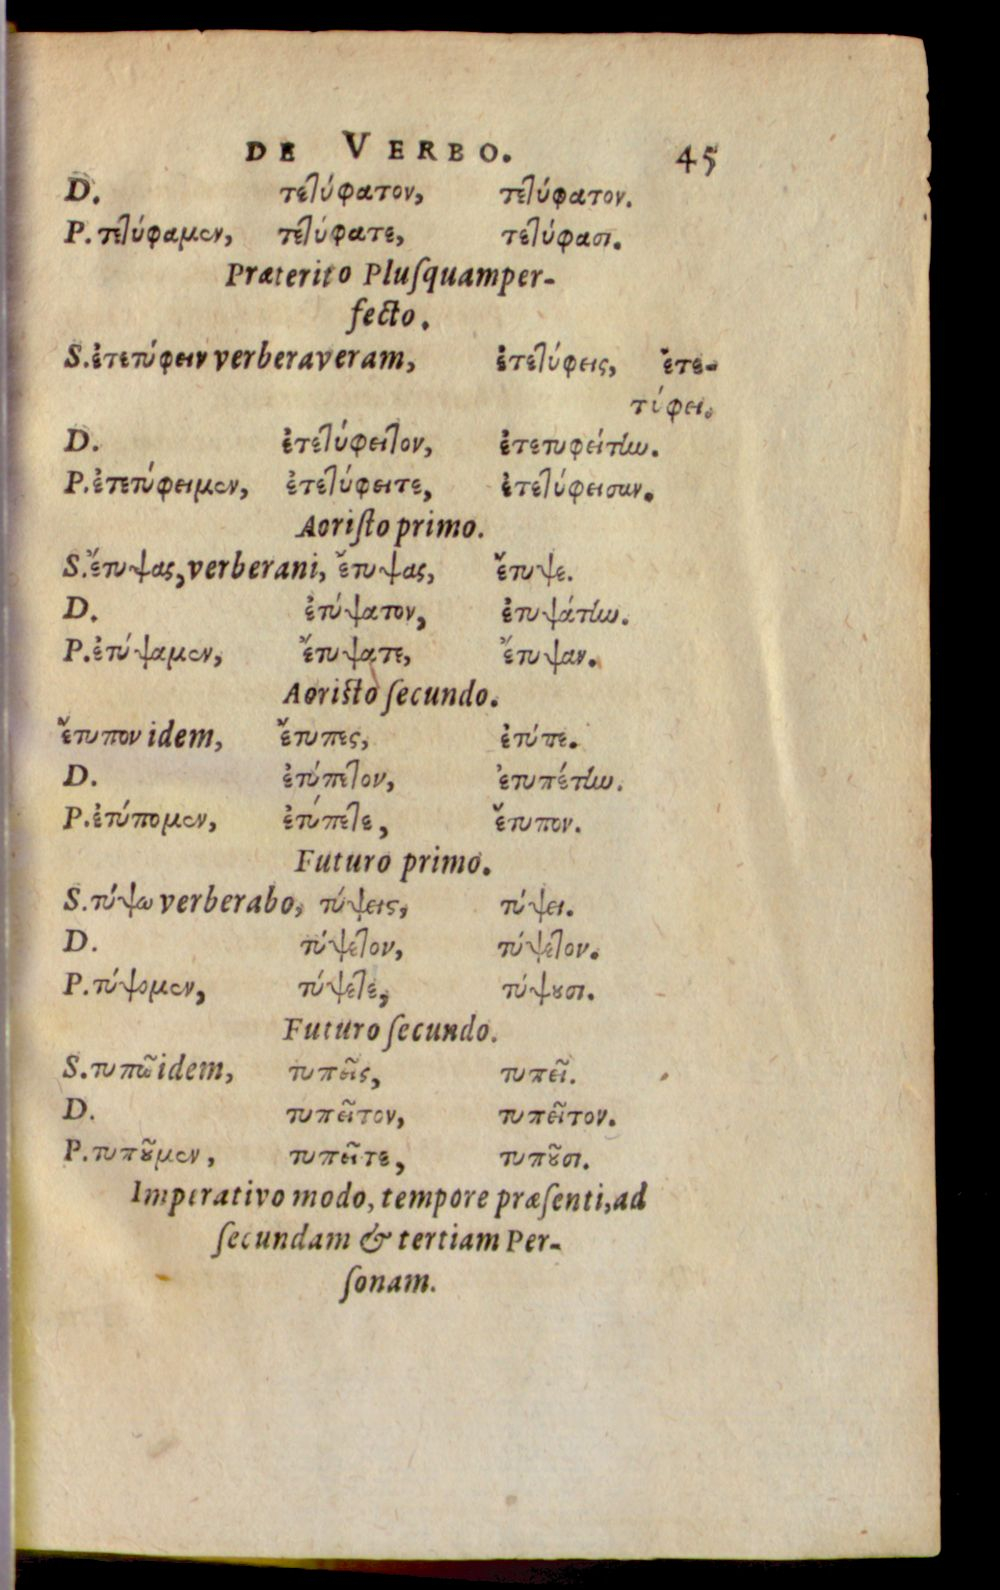 DE VERBO. 45
D. τετύφατον, τετύφατον.
P. τετύφαμεν, τετύφατε, τετύφασι.
Præterito Pluſquamper-
fecto.
S. ἐτετύφειν verberaveram, ἐτετύφεις, ἐτε-
τύφει.
D. ἐτετύφειτον, ἐτετυφείτην.
P. ἐτετύφειμεν, ἐτετύφειτε, ἐτετύφεισαν.
Aoriſto primo.
S. ἔτυψας, verberani, ἔτυψας, ἔτυψε.
D. ἐτύψατον, ἐτυψάτην.
P. ἐτύψαμεν, ἔτυψατε, ἔτυψαν.
Aoristo ſecundo.
ἔτυπον idem, ἔτυπες, ἐτύπε.
D. ἐτύπετον, ἐτυπέτην.
P. ἐτύπομεν, ἐτύπετε, ἔτυπον.
Futuro primo.
S. τύψω verberabo, τύψεις, τύψει.
D. τύψετον, τύψετον.
P. τύψομεν, τύψετε, τύψουσι.
Futuro ſecundo.
S. τυπῶ idem, τυπεῖς, τυπεῖ.
D. τυπεῖτον, τυπεῖτον.
P. τυποῦμεν, τυπεῖτε, τυποῦσι.
Imperativo modo, tempore præſenti, ad
ſecundam & tertiam Per-
ſonam.